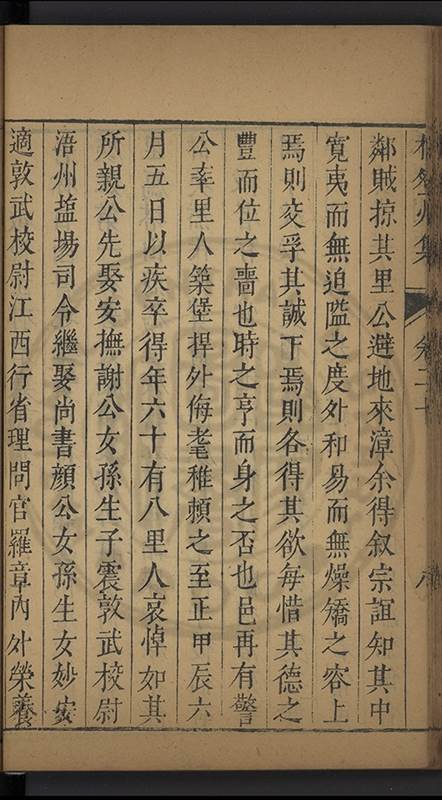 鄰賊掠其里公避地來漳余得叙宗誼知其中
寬夷而無迫隘之度外和易而無燥矯之容上
焉則交孚其誠下焉則各得其欲每惜其德之
豐而位之嗇也時之亨而身之否也邑再有警
公率里人築堡捍外侮耄稚頼之至正甲辰六
月五日以疾卒得年六十有八里人哀悼如其
所親公先娶安撫謝公女孫生子震敦武校尉
浯州塩場司令繼娶尚書顔公女孫生女妙安
適敦武校尉江西行省理問官羅章內外榮養